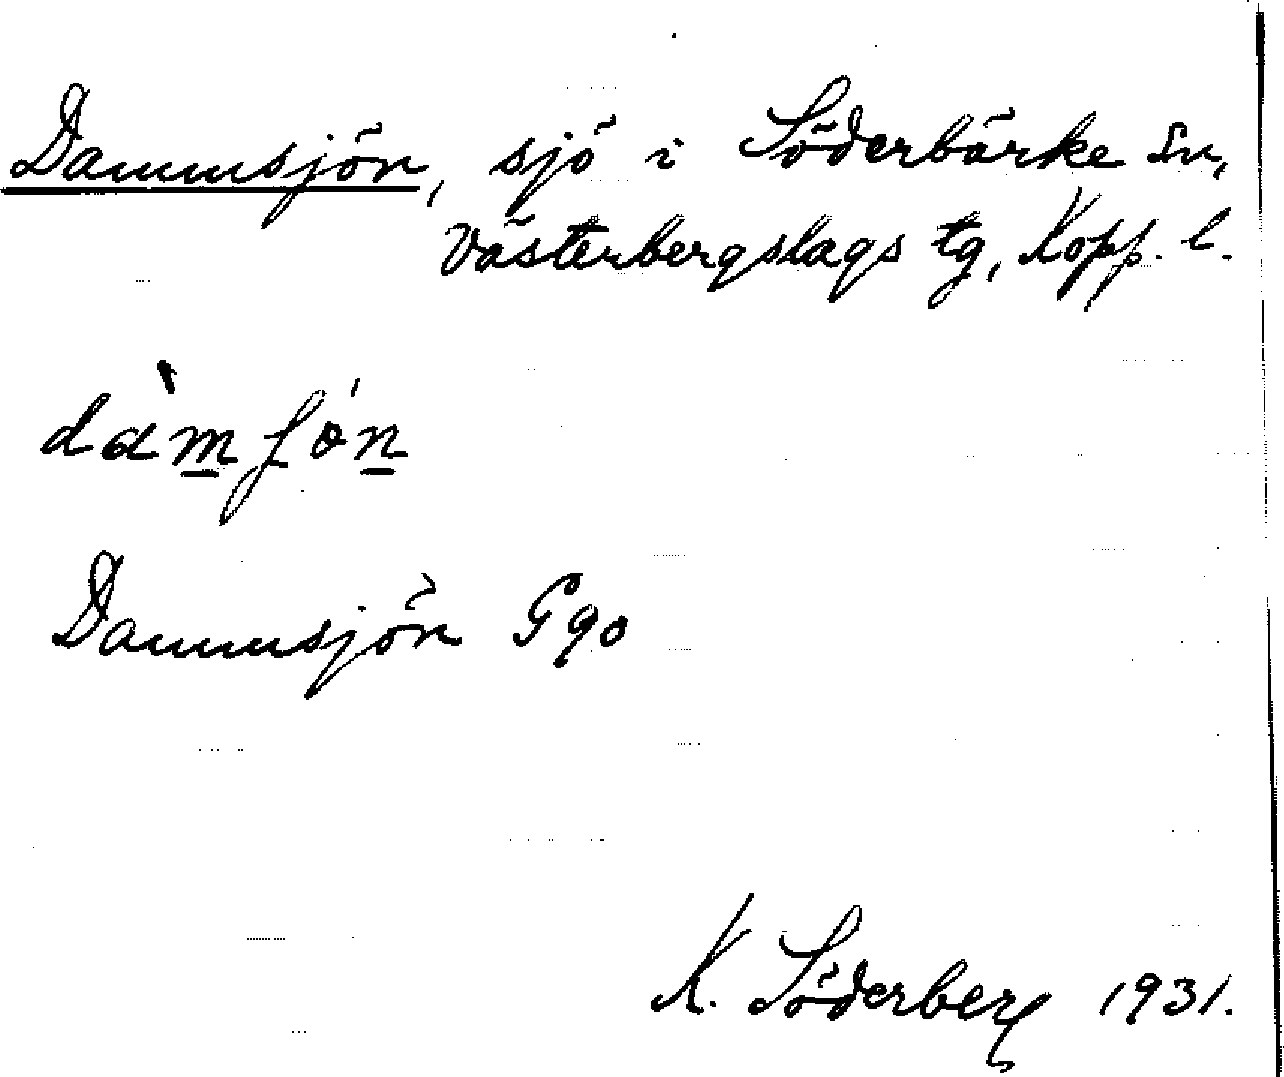 Dammsjön, sjö i Söderbärke sn,
Västerbergslags tg, Kopp. l.
Dammsjön G 90
K. Söderberg 1931.